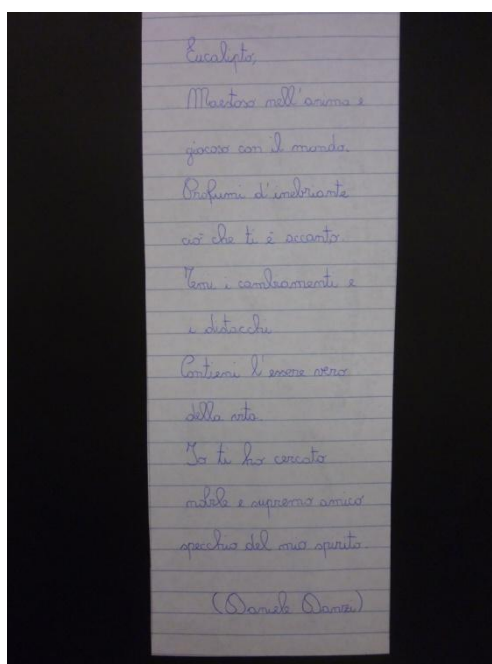 Eucalipto,
Maestoso nell'anima e
giocoso con il mondo.
Profumi d'inebriante
ciò che ti è accanto.
Temi i cambiamenti e
i distacchi
Contieni l'essere vero
della vita.
Io ti ho cercato
nobile e supremo amico
specchio del mio spirito.
(Daniele